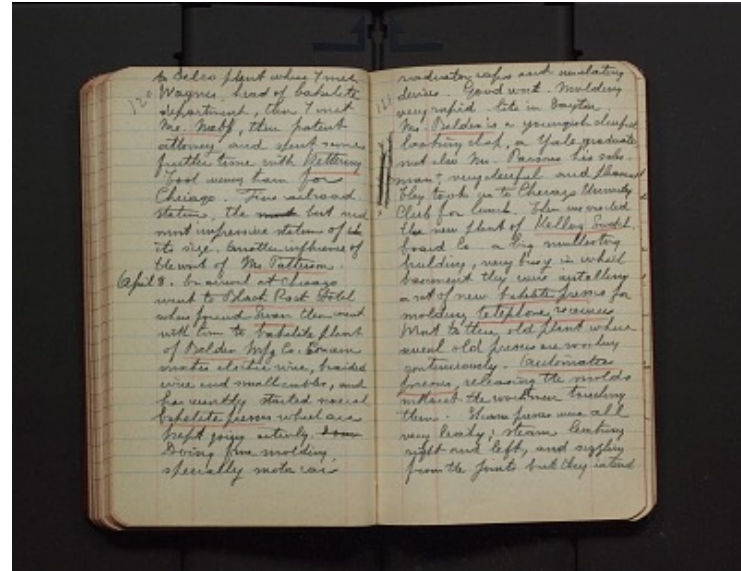 120
to Delco plant where I met
Wagner, head of bakelite
department, then I met
Mr. Nabb, their patent
attorney and spent some
further time with Kettering
Took evening train for
Chicago. Fine railroad
station, the most best and
most impressive station of its
its size. Another influence of
the work of Mr. Patterson.
April 8. On arrival at Chicago
went to Black Rock Hotel
where found Swan then went
with him to bakelite plant
of Belden Mfg Co. Concern
makes electric wire, braided
wire and small cables, and
has recently started several
bakelite presses which are
kept going actively.
Doing fine molding
specially motor car
121
radiator caps and insulating
devices. Good work. Molding
very rapid like in Dayton.
Mr. Belden is a youngish cheerful
looking chap, a Yale graduate
not also Mr. Parsons his sales
man, very cheerful and pleasant
They took us to Chicago University
Club for lunch. Then we visited
the new plant of Kellogg Switch
board Co. a big
building, very busy in which
basement they were installing
a set of new bakelite presses for
molding telephone receivers
Went to their old plant where
several old presses are working
continuously. Automatic
presses, releasing the molds
without the workmen touching
them. Steam presses were all
very leaky; steam leaking
right and left, and sizzling
from the joints but they intend